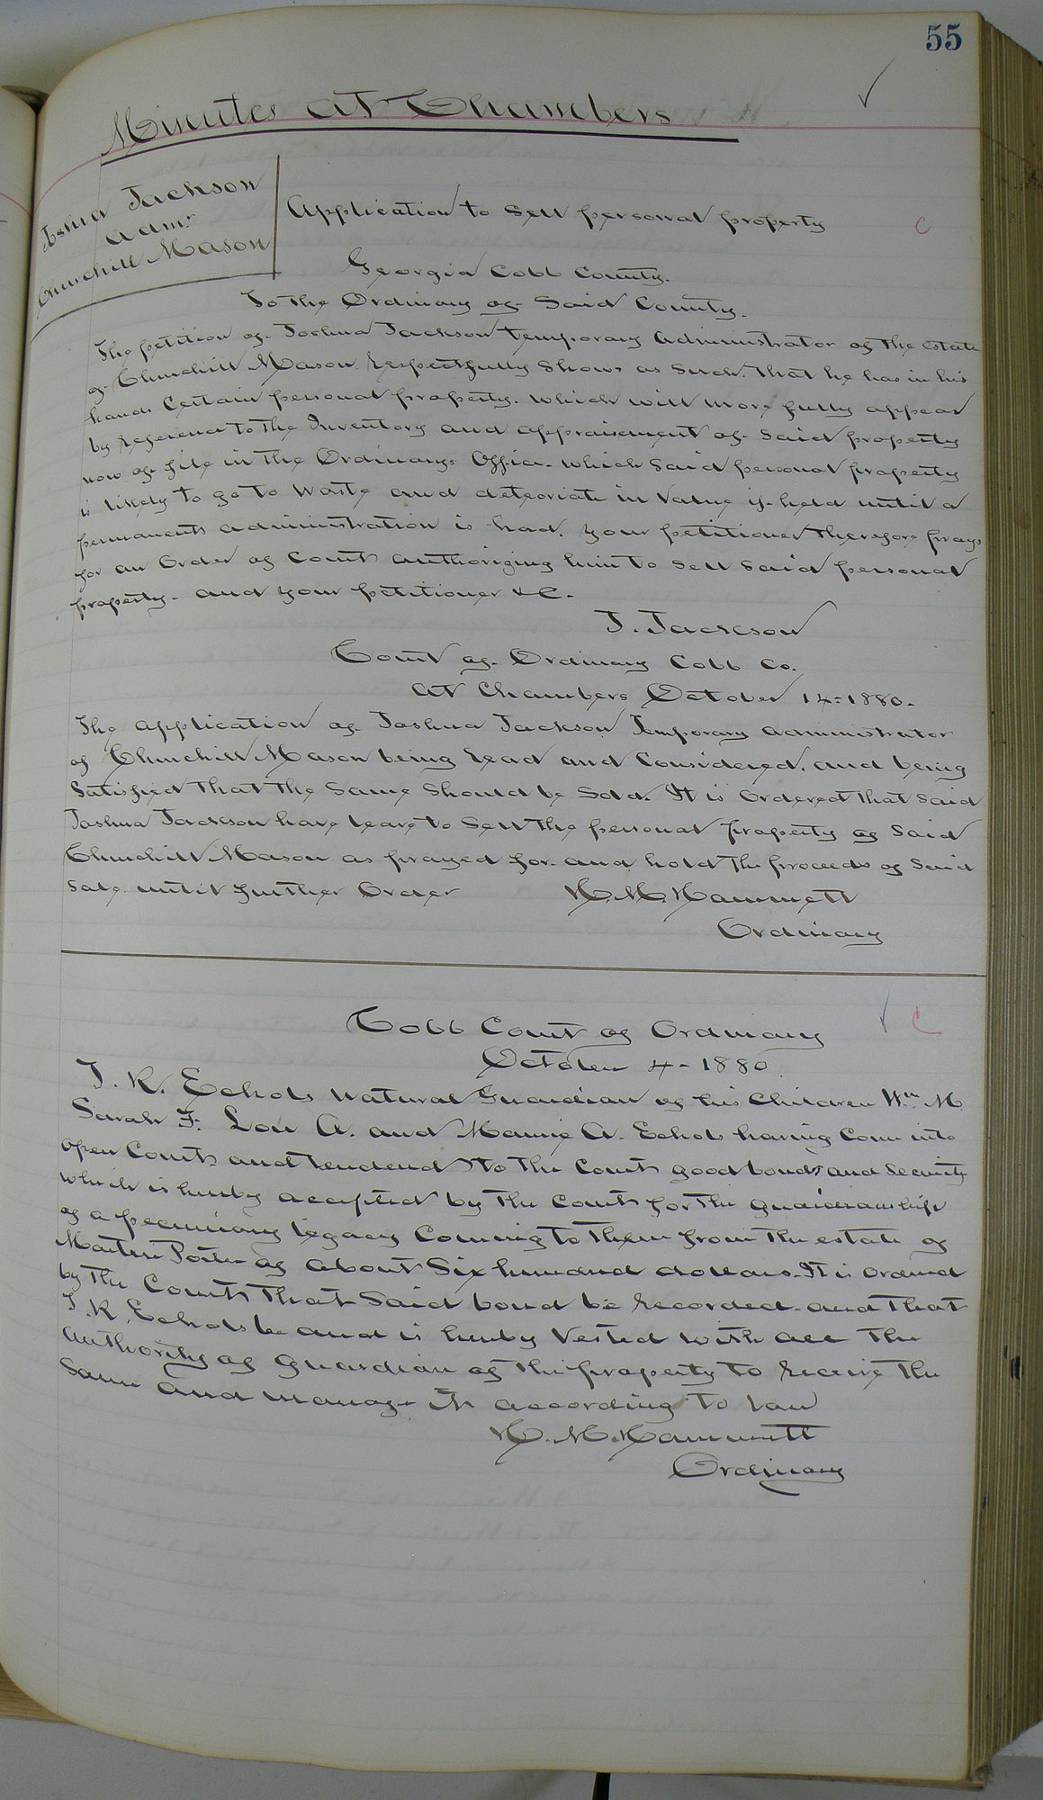 55
Minutes at Chambers
Joshua Jackson
admr
Churchill Mason
Application to sell personal property
Georgia Cobb County.
To the Ordinary of Said County.
The petition of Joshua Jackson temporary administrator of the estate
of Churchill Mason respectfully shows as such that he has in his
hands Certain personal property. which will more fully appear
by reference to the Inventory and appraisement of said property
now of file in the Ordinarys Office. which said personal property
is likely to go to waste and deteoriate in value if held until a
permanent administration is had. your petitioner therefore prays
for an Order of Court authorizing him to sell said personal
property. and your petitioner &C.
J. Jackson
Court of Ordinary Cobb Co.
At Chambers October 14-1880.
The application of Joshua Jackson Temporary administrator
of Churchill Mason being read and Considered. and being
Satisfied that the same should be Sold. It is Ordered that said
Joshua Jackson have leave to sell the personal property of said
Churchill Mason as prayed for and hold the proceeds of said
sale until further Order
H. M. Hammett
Ordinary
Cobb Court of Ordinary
October 4-1880
J. R. Echols natural Guardian of his Children Wm M
Sarah F. Lou A. and Mannie A. Echols having Come into
open Court and tendend to the Court good bond and Security
which is hereby accepted by the Court for the guardianship
of a pecuniary legacy Coming to them from the estate of
Martin Porter of about Six hundred dollars. It is ordered
by the Court that said bond be recorded. and that
J. R. Echols be and is hereby Vested with all the
authority of guardian of the property to receive the
same and manage it according to law
H. M. Hammett
Ordinary